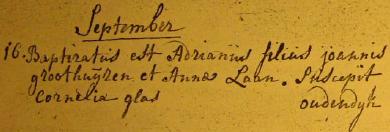 September
16. Baptizatus est Adrianus filius joannis
groothuyzen et Annæ Laan. Suscepit
Cornelia glas oudendijk